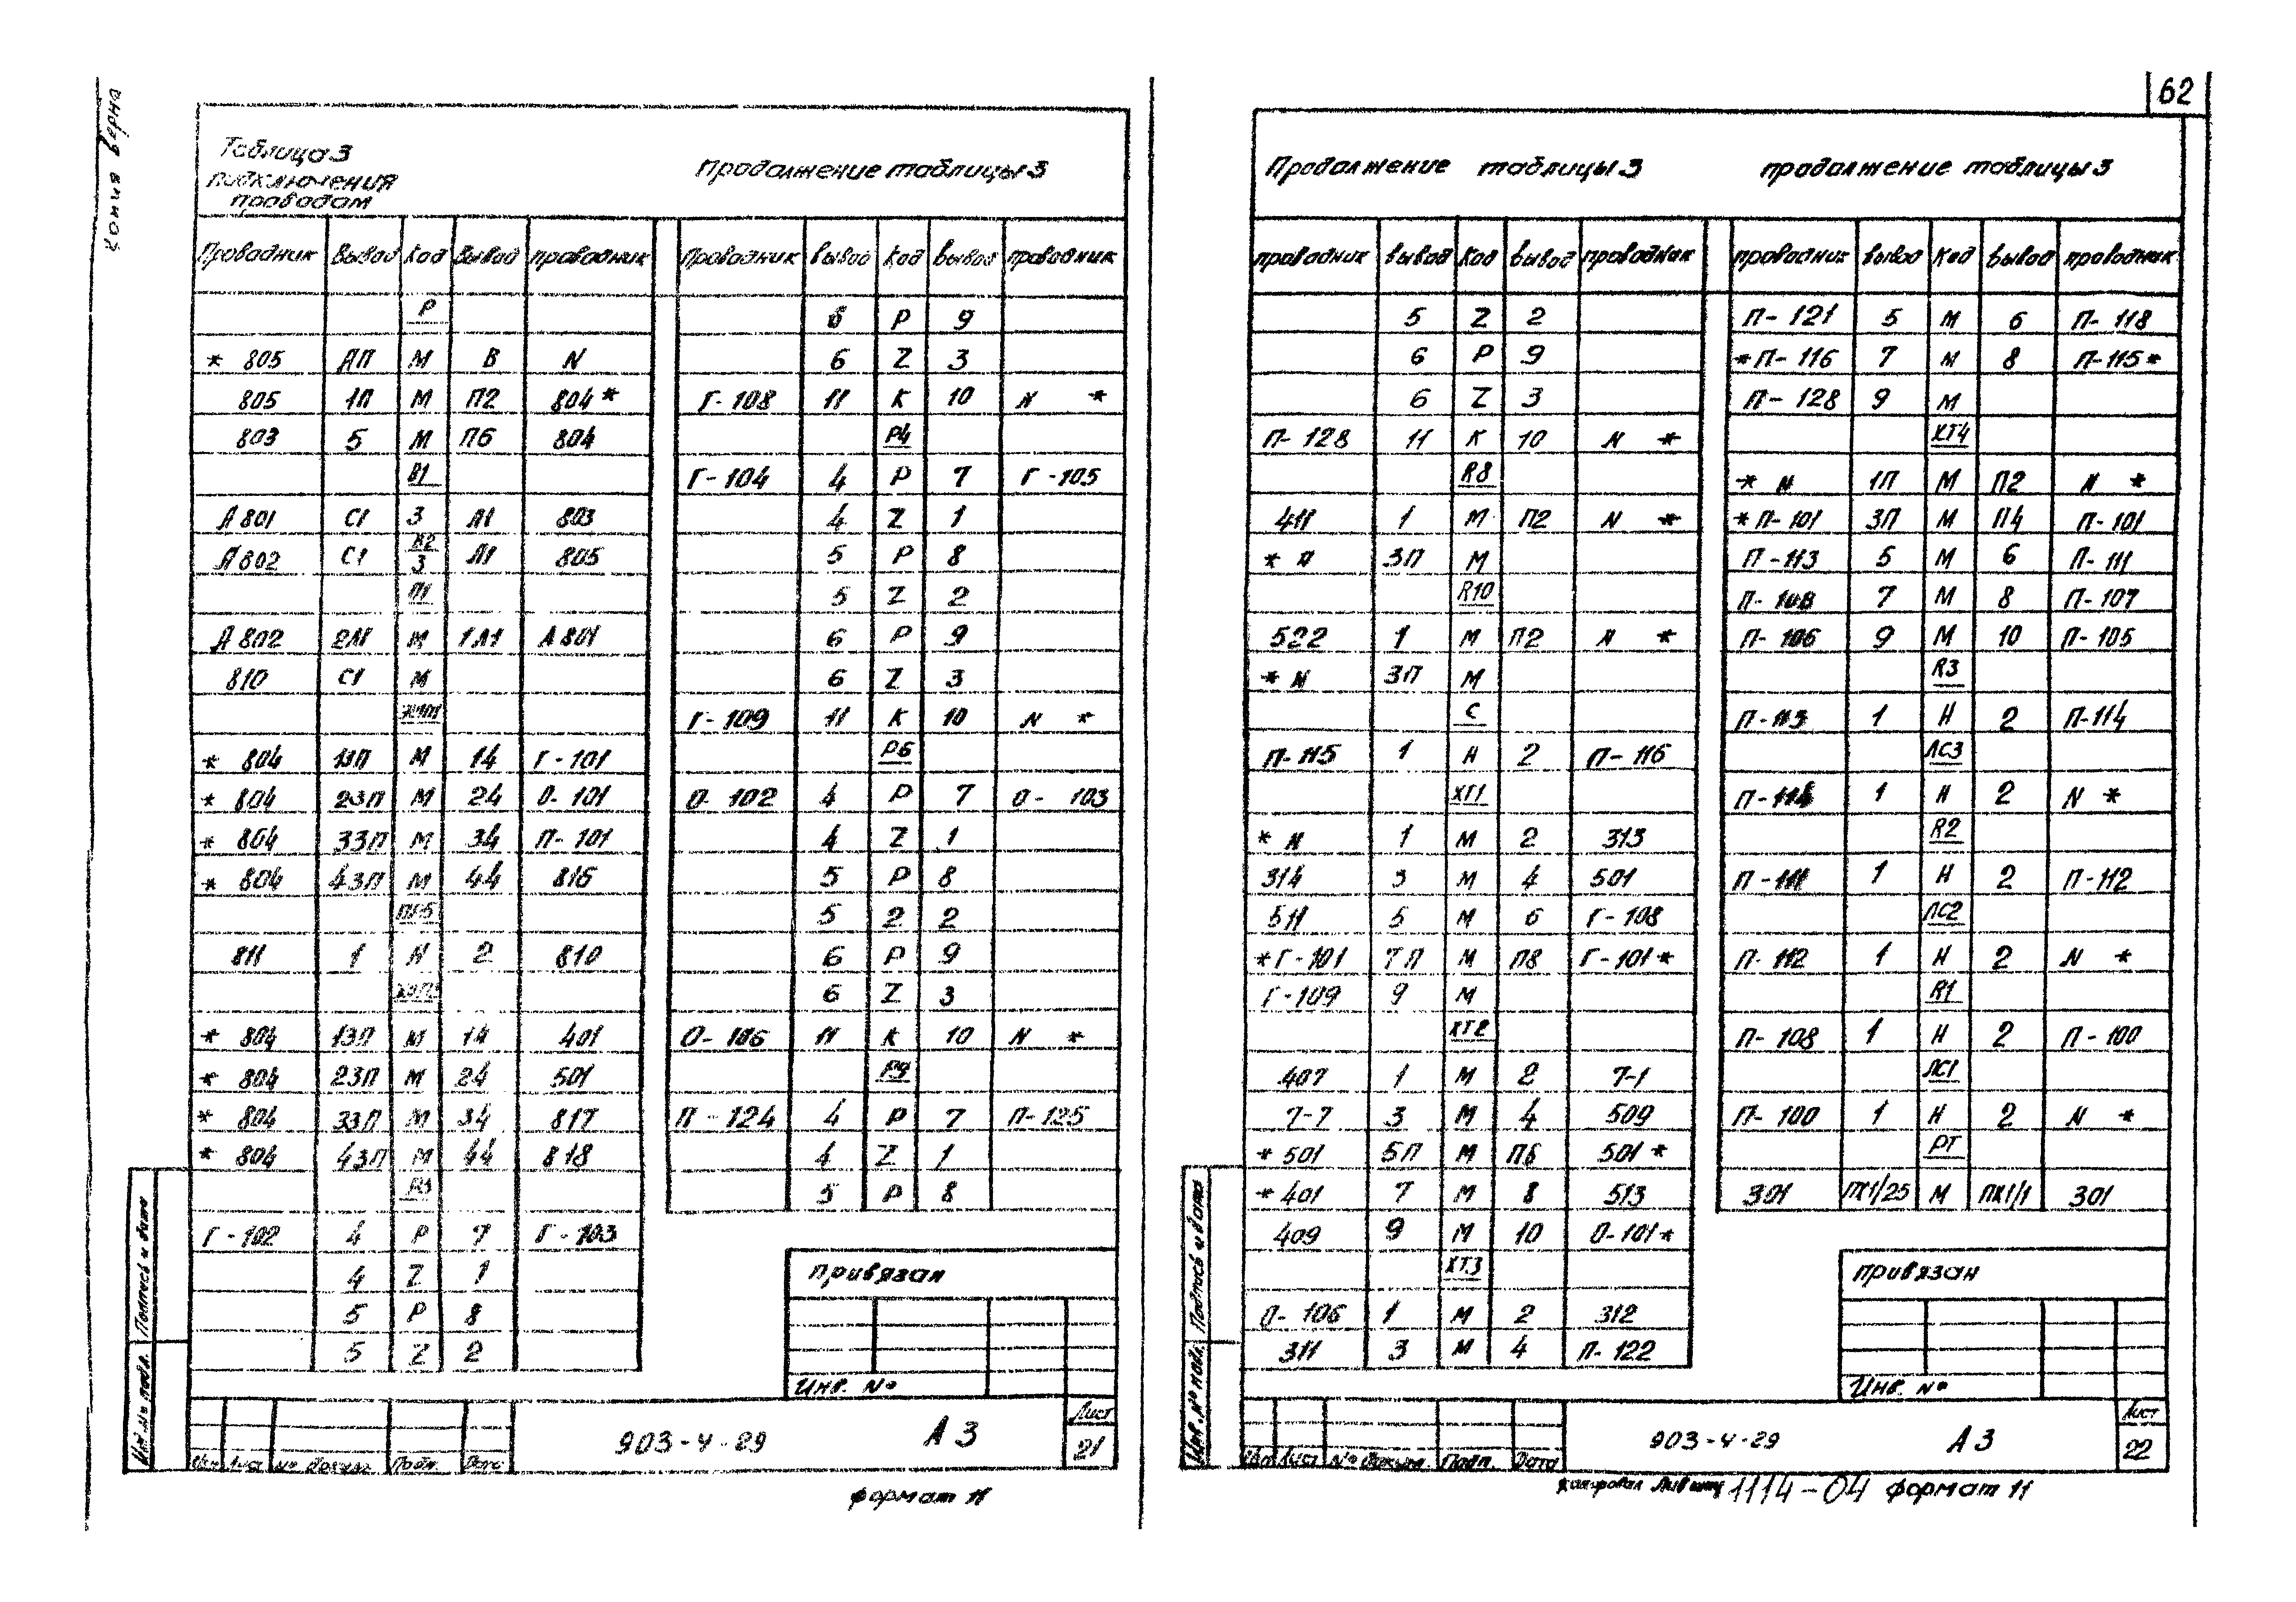 62
Копия верна
Таблица 3
подключения
проводам
Продолжение таблицы 3
Проводник Вывод Код Вывод проводник
Р
* 805 ДП М В N
805 1П М П2 804 *
803 5 М П6 804
В1
Л 801 С1 3 Л1 803
В2
Л 802 С1 3 Л1 805
П1
Л 802 2Л1 М 1Л1 А 801
810 С1 М
* 804 13П М 14 Г-101
* 804 23П М 24 О-101
* 804 33П М 34 П-101
* 804 43П М 44 816
811 1 Н 2 810
* 804 13П М 14 401
* 804 23П М 24 501
* 804 33П М 34 817
* 804 43П М 44 818
Р3
Г-102 4 Р 7 Г-103
4 Z 1
5 Р 8
5 Z 2
Проводник вывод Код вывод проводник
6 Р 9
6 Z 3
Г-108 11 К 10 N *
Р4
Г-104 4 Р 7 Г-105
4 Z 1
5 Р 8
5 Z 2
6 Р 9
6 Z 3
Г-109 11 К 10 N *
Р6
О-102 4 Р 7 О-103
4 Z 1
5 Р 8
5 2 2
6 Р 9
6 Z 3
О-106 11 К 10 N *
Р9
П-124 4 Р 7 П-125
4 Z 1
5 Р 8
привязан
Инв. №
903-4-29
А 3
Лист
21
Изм Лист № докум. Подп. Дата
Инв. № подл. Подпись и дата
формат 11
Продолжение таблицы 3
продолжение таблицы 3
проводник вывод Код вывод проводник
5 Z 2
6 Р 9
6 Z 3
П-128 11 К 10 N *
R8
411 1 М П2 N *
* N 3П М
R10
522 1 М П2 N *
* N 3П М
С
П-115 1 Н 2 П-116
ХТ1
* N 1 М 2 313
314 3 М 4 501
511 5 М 6 Г-108
* Г-101 7П М П8 Г-101 *
Г-109 9 М
ХТ2
407 1 М 2 7-1
7-7 3 М 4 509
* 501 5П М П6 501 *
* 401 7 М 8 513
409 9 М 10 О-101 *
ХТ3
О-106 1 М 2 312
311 3 М 4 П-122
проводник вывод Код вывод проводник
П-121 5 М 6 П-118
* П-116 7 М 8 П-115 *
П-128 9 М
ХТ4
* N 1П М П2 N *
* П-101 3П М П4 П-101
П-113 5 М 6 П-111
П-108 7 М 8 П-107
П-106 9 М 10 П-105
R3
П-113 1 Н 2 П-114
ЛС3
П-114 1 Н 2 N *
R2
П-111 1 Н 2 П-112
ЛС2
П-112 1 Н 2 N *
R1
П-108 1 Н 2 П-100
ЛС1
П-100 1 Н 2 N *
РТ
301 ПК1/25 М ПК1/1 301
привязан
Инв. №
903-4-29
А 3
Лист
22
Изм Лист № докум. Подп. Дата
Инв. № подл. Подпись и дата
копировал 1114-04 формат 11